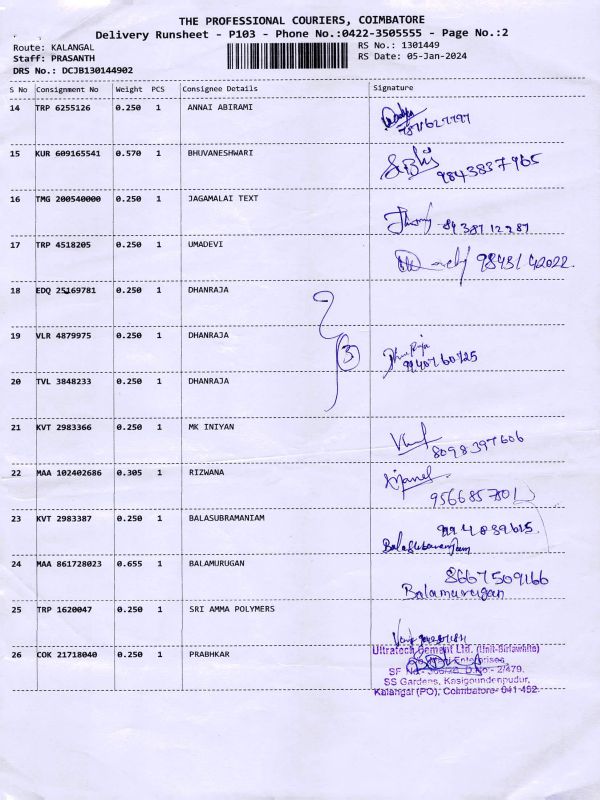 THE PROFESSIONAL COURIERS, COIMBATORE
Delivery Runsheet - P103 - Phone No.:0422-3505555 - Page No.:2
Route: KALANGAL RS No.: 1301449
Staff: PRASANTH RS Date: 05-Jan-2024
DRS No.: DCJB130144902
S No Consignment No Weight PCS Consignee Details Signature
14 TRP 6255126 0.250 1 ANNAI ABIRAMI
15 KUR 609165541 0.570 1 BHUVANESHWARI
9843837965
16 TMG 200540000 0.250 1 JAGAMALAI TEXT
17 TRP 4518205 0.250 1 UMADEVI
9843142022.
18 EDQ 25169781 0.250 1 DHANRAJA
19 VLR 4879975 0.250 1 DHANRAJA
3
9940760725
20 TVL 3848233 0.250 1 DHANRAJA
21 KVT 2983366 0.250 1 MK INIYAN
8098397606
22 MAA 102402686 0.305 1 RIZWANA
23 KVT 2983387 0.250 1 BALASUBRAMANIAM
Balasubramaniam
24 MAA 861728023 0.655 1 BALAMURUGAN
8667509166
Balamurugan
25 TRP 1620047 0.250 1 SRI AMMA POLYMERS
26 COK 21718040 0.250 1 PRABHKAR
Ultratech Cement Ltd.
SS Gardens, Kasigoundenpudur,
Kalangal (PO), Coimbatore- 641 402.